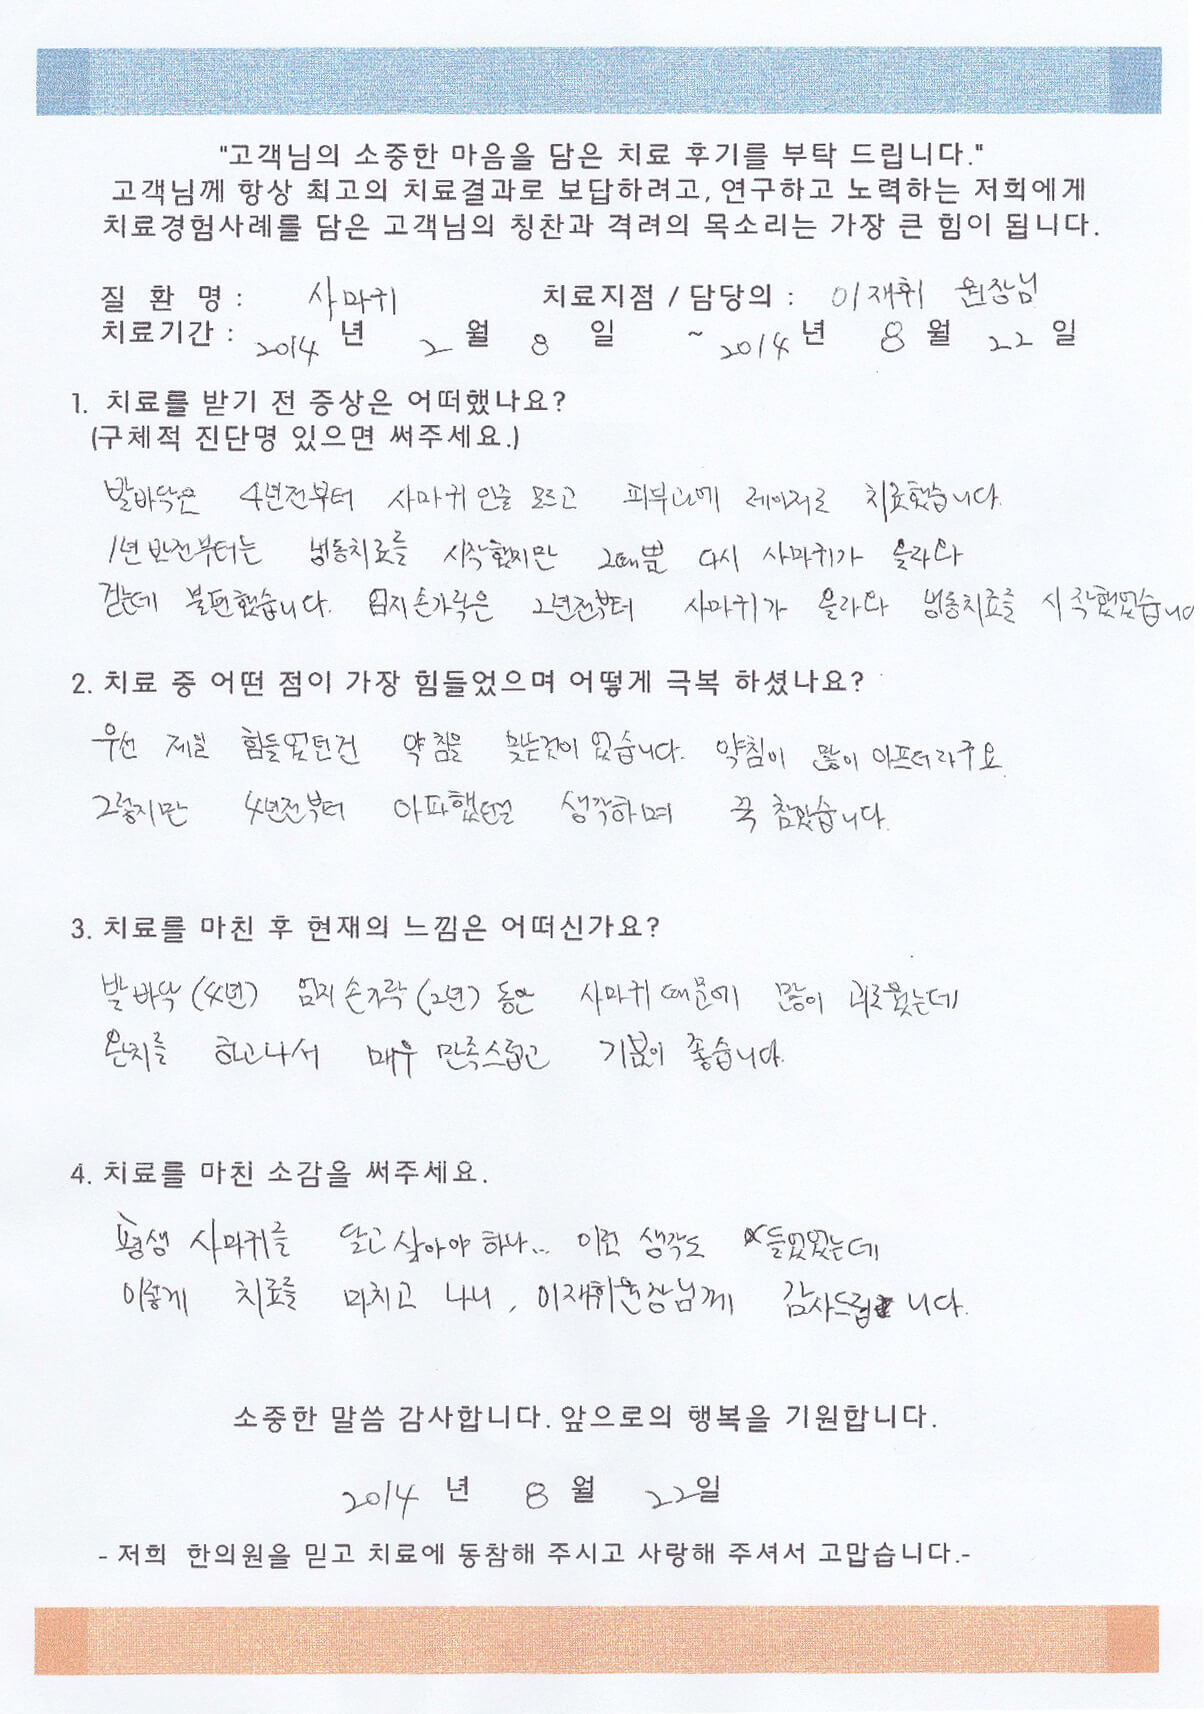 "고객님의 소중한 마음을 담은 치료 후기를 부탁 드립니다."
고객님께 항상 최고의 치료결과로 보답하려고, 연구하고 노력하는 저희에게
치료경험사례를 담은 고객님의 칭찬과 격려의 목소리는 가장 큰 힘이 됩니다.
질 환 명 : 사마귀 치료지점 / 담당의 : 이재휘 원장님
치료기간 : 2014 년 2 월 8 일 ~ 2014 년 8 월 22 일
1. 치료를 받기 전 증상은 어떠했나요?
(구체적 진단명 있으면 써주세요.)
발바닥은 4년전부터 사마귀인줄 모르고 피부과에 레이저로 치료했습니다.
1년반전부터는 냉동치료를 시작했지만 그때뿐 다시 사마귀가 올라와
걷는데 불편했습니다. 엄지손가락은 2년전부터 사마귀가 올라와 냉동치료를 시작했었습니다
2. 치료 중 어떤 점이 가장 힘들었으며 어떻게 극복 하셨나요?
우선 제일 힘들었던건 약침을 맞는것이 었습니다. 약침이 많이 아프더라구요.
그렇지만 4년전부터 아파했던걸 생각하며 꾹 참았습니다.
3. 치료를 마친 후 현재의 느낌은 어떠신가요?
발바닥 (4년) 엄지손가락 (2년) 동안 사마귀때문에 많이 괴로웠는데
완치를 하고나서 매우 만족스럽고 기분이 좋습니다.
4. 치료를 마친 소감을 써주세요.
평생 사마귀를 달고 살아야 하나... 이런 생각도 들었었는데
이렇게 치료를 마치고 나니, 이재휘원장님께 감사드립니다.
소중한 말씀 감사합니다. 앞으로의 행복을 기원합니다.
2014 년 8 월 22일
- 저희 한의원을 믿고 치료에 동참해 주시고 사랑해 주셔서 고맙습니다.-